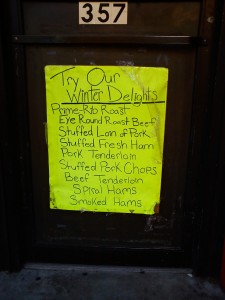 357
Try Our
Winter Delights
Prime-Rib Roast
Eye Round Roast Beef
Stuffed Loin of Pork
Stuffed Fresh Ham
Pork Tenderloin
Stuffed Pork Chops
Beef Tenderloin
Spiral Hams
Smoked Hams